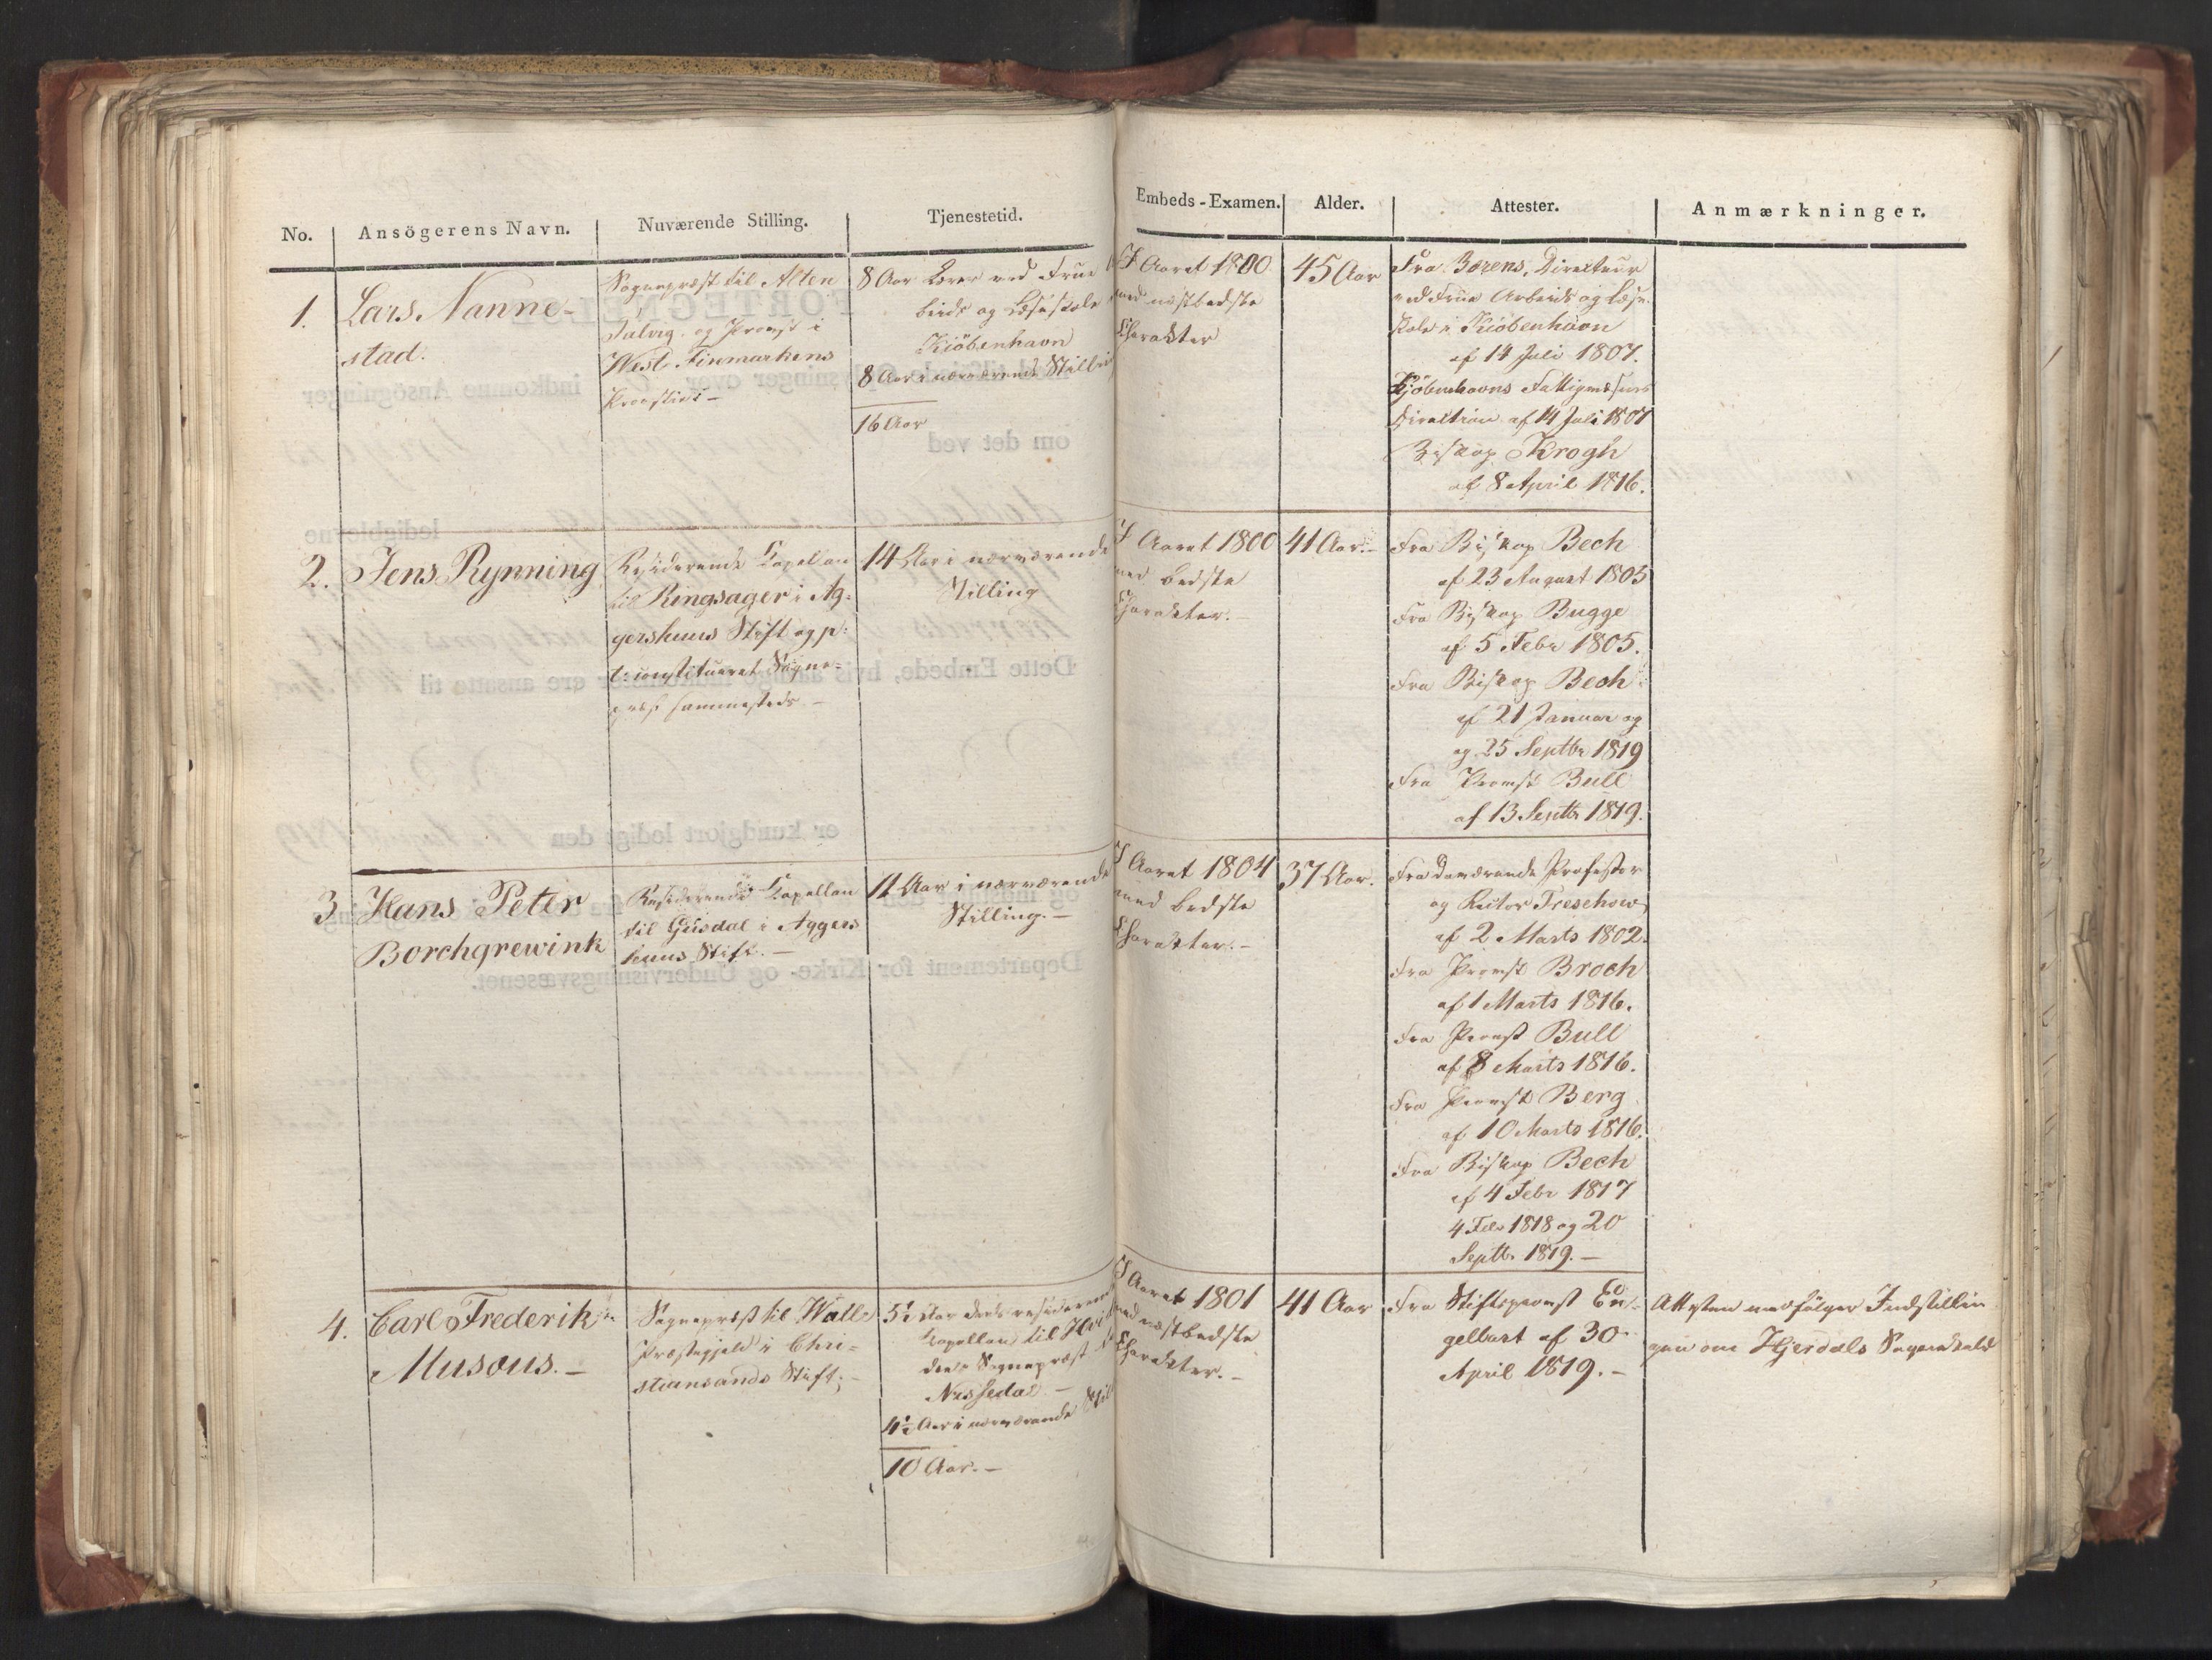 No.
Ansögerens Navn.
Nuværende Stilling.
Tjenestetid.
Embeds-Examen.
Alder.
Attester.
Anmærkninger.
1.
Lars Nanne-
stad.
Sognepræst til Alten
Talvig og Provst i
West-Finmarkens
Provstie -
8 Aar Lærer ved Frue
beids og Læseskole
Kiöbenhavn
8 Aar i nærværende Stilli
16 Aar
I Aaret 1800
med næstbedste
Charakter
45 Aar
Fra Börens, Directeur
ved Frue Arbeids og Læse-
skole i Kiöbenhavn
af 14 Juli 1807.
Kjöbenhavns Fattigvæsens
Direction af 14 Juli 1807
Biskop Krogh
af 8 April 1816.
2.
Jens Rynning
Residerende Capellan
til Ringsager i Ag-
gershuus Stift og p:
t: constitueret Sogne-
præst sammesteds -
14 Aar i nærværende
Stilling
I Aaret 1800
med bedste
Charakter. -
41 Aar. -
Fra Biskop Bech
af 23 August 1805
Fra Biskop Bugge
af 5 Febr 1805.
Fra Biskop Bech
af 21 Januar og
og 25 Septbr 1819
Fra Provst Bull
af 13 Septbr 1819.
3
Hans Peter
Borchgrewink
Residerende Capellan
til Gusdal i Aggers
huus Stift. -
11 Aar i nærværende
Stilling. -
I Aaret 1804
med bedste
Charakter. -
37 Aar.
Fra daværende Professor
og Rector Treschow
af 2 Marts 1802.
Fra Provst Broch
af 1 Marts 1816.
Fra Provst Bull
af 8 Marts 1816.
Fra Provst Berg
af 10 Marts 1816.
Fra Biskop Bech
af 4 Febr 1817
4 Febr 1818 og 20
Septbr 1819. -
4.
Carl Frederik
Musæus. -
Sognepræst til Walle
Præstegjeld i Chri-
stiansands Stift; -
5½ Aar deels residerend
Capellan til Hvi
deels Sognepræst
Nissedal -
4½ Aar i nærværende Stil
10 Aar. -
I Aaret 1801
med næstbedste
Charakter. -
41 Aar
Fra Stiftsprovst En-
gelhart af 30
April 1819. -
Attesten medfølger Indstillin
gen om Hjerdals Sognekald